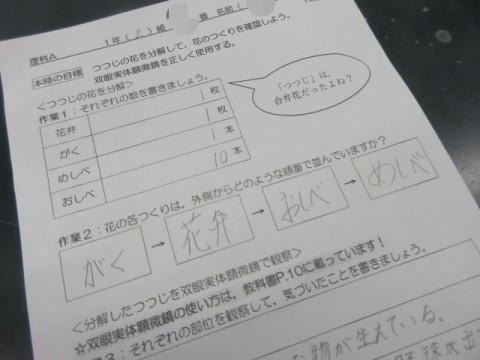 理科A 1年( 2 )組 番 名前(
本時の目標 つつじの花を分解して、花のつくりを確認しよう。
双眼実体顕微鏡を正しく使用する。
<つつじの花を分解>
作業1:それぞれの数を書きましょう。
花弁 1 枚
がく 1 枚
めしべ 1 本
おしべ 10 本
「つつじ」は、
合弁花だったよね?
作業2:花の各つくりは、外側からどのような順番で並んでいますか?
がく → 花弁 → おしべ → めしべ
<分解したつつじを双眼実体顕微鏡で観察>
☆双眼実体顕微鏡の使い方は、教科書P.10に載っています!
3:それぞれの部位を観察して、気づいたことを書きましょう。
物が生えている。